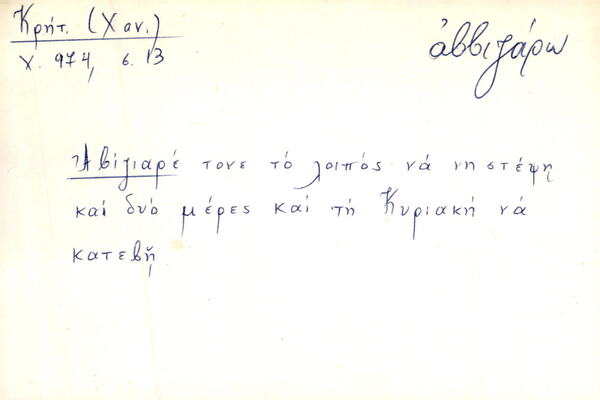 Κρήτ. (Χαν.)
ἀββιζάρω
Χ. 974, σ. 13
Ἀβίζιαρέ τονε τό λοιπός νά νηστέψη
καί δυό μέρες καί τή Κυριακή νά
κατεβῆ